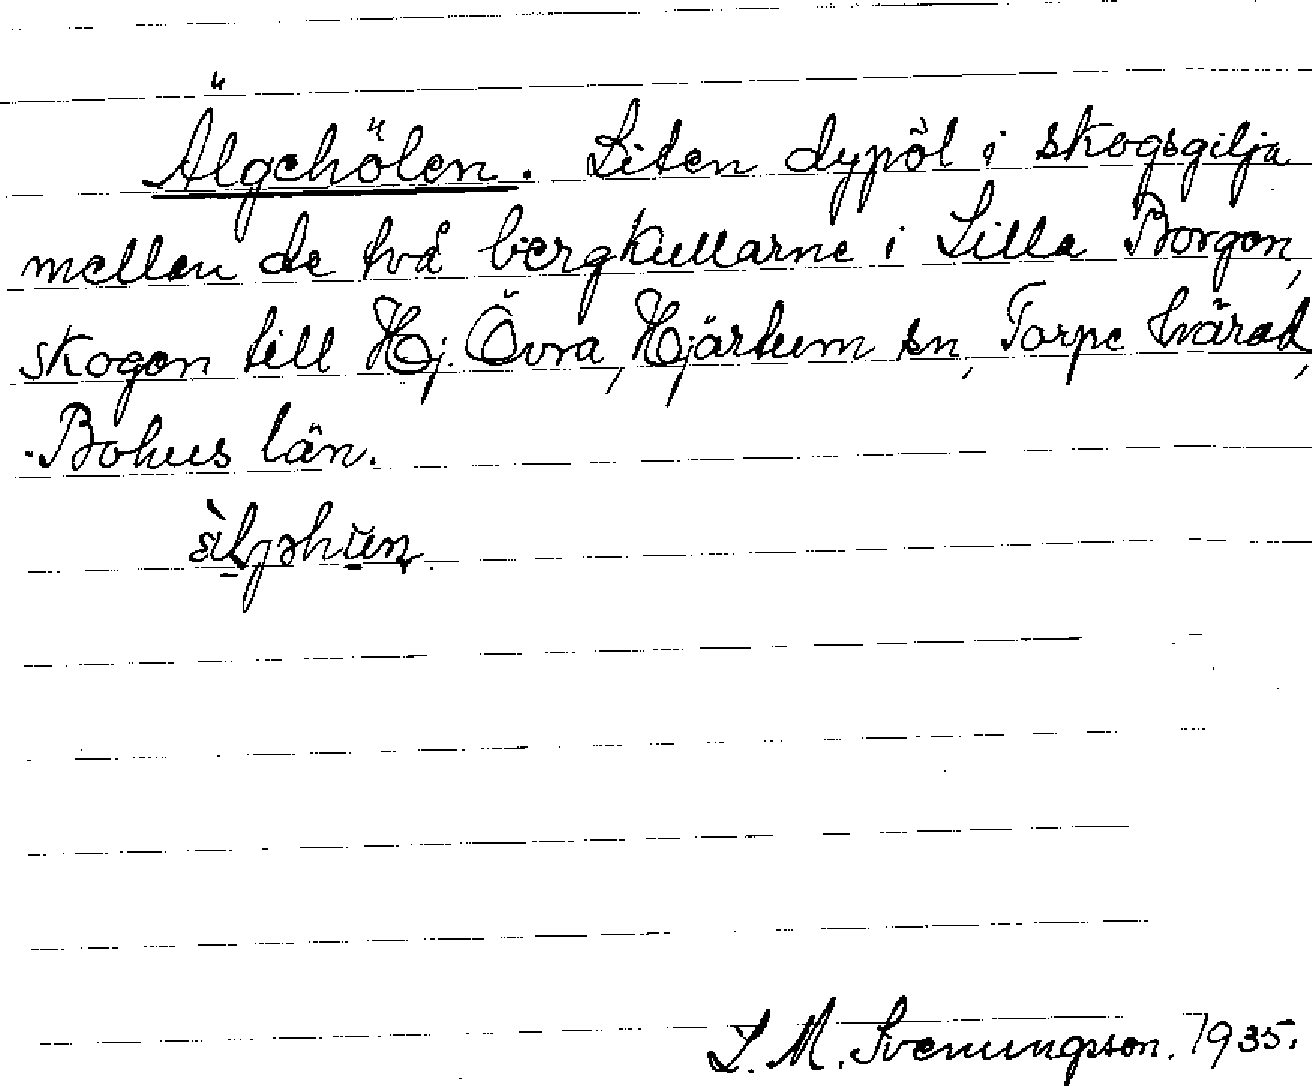 Älgehölen. Liten dypöl i skogsgilja
mellan de två bergkullarne i Lilla Borgen,
skogen till Hj. Övra, Hjärtum sn, Torpe härad,
Bohus län.
L. M. Svenungsson. 1935.